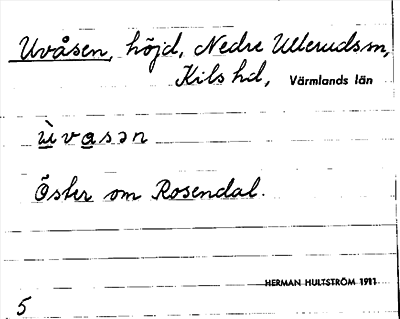 Uvåsen, höjd, Nedre Ullerudsm,
Kils hd, Värmlands län
ùvasən
Öster om Rosendal.
HERMAN HULTSTRÖM 1911
5